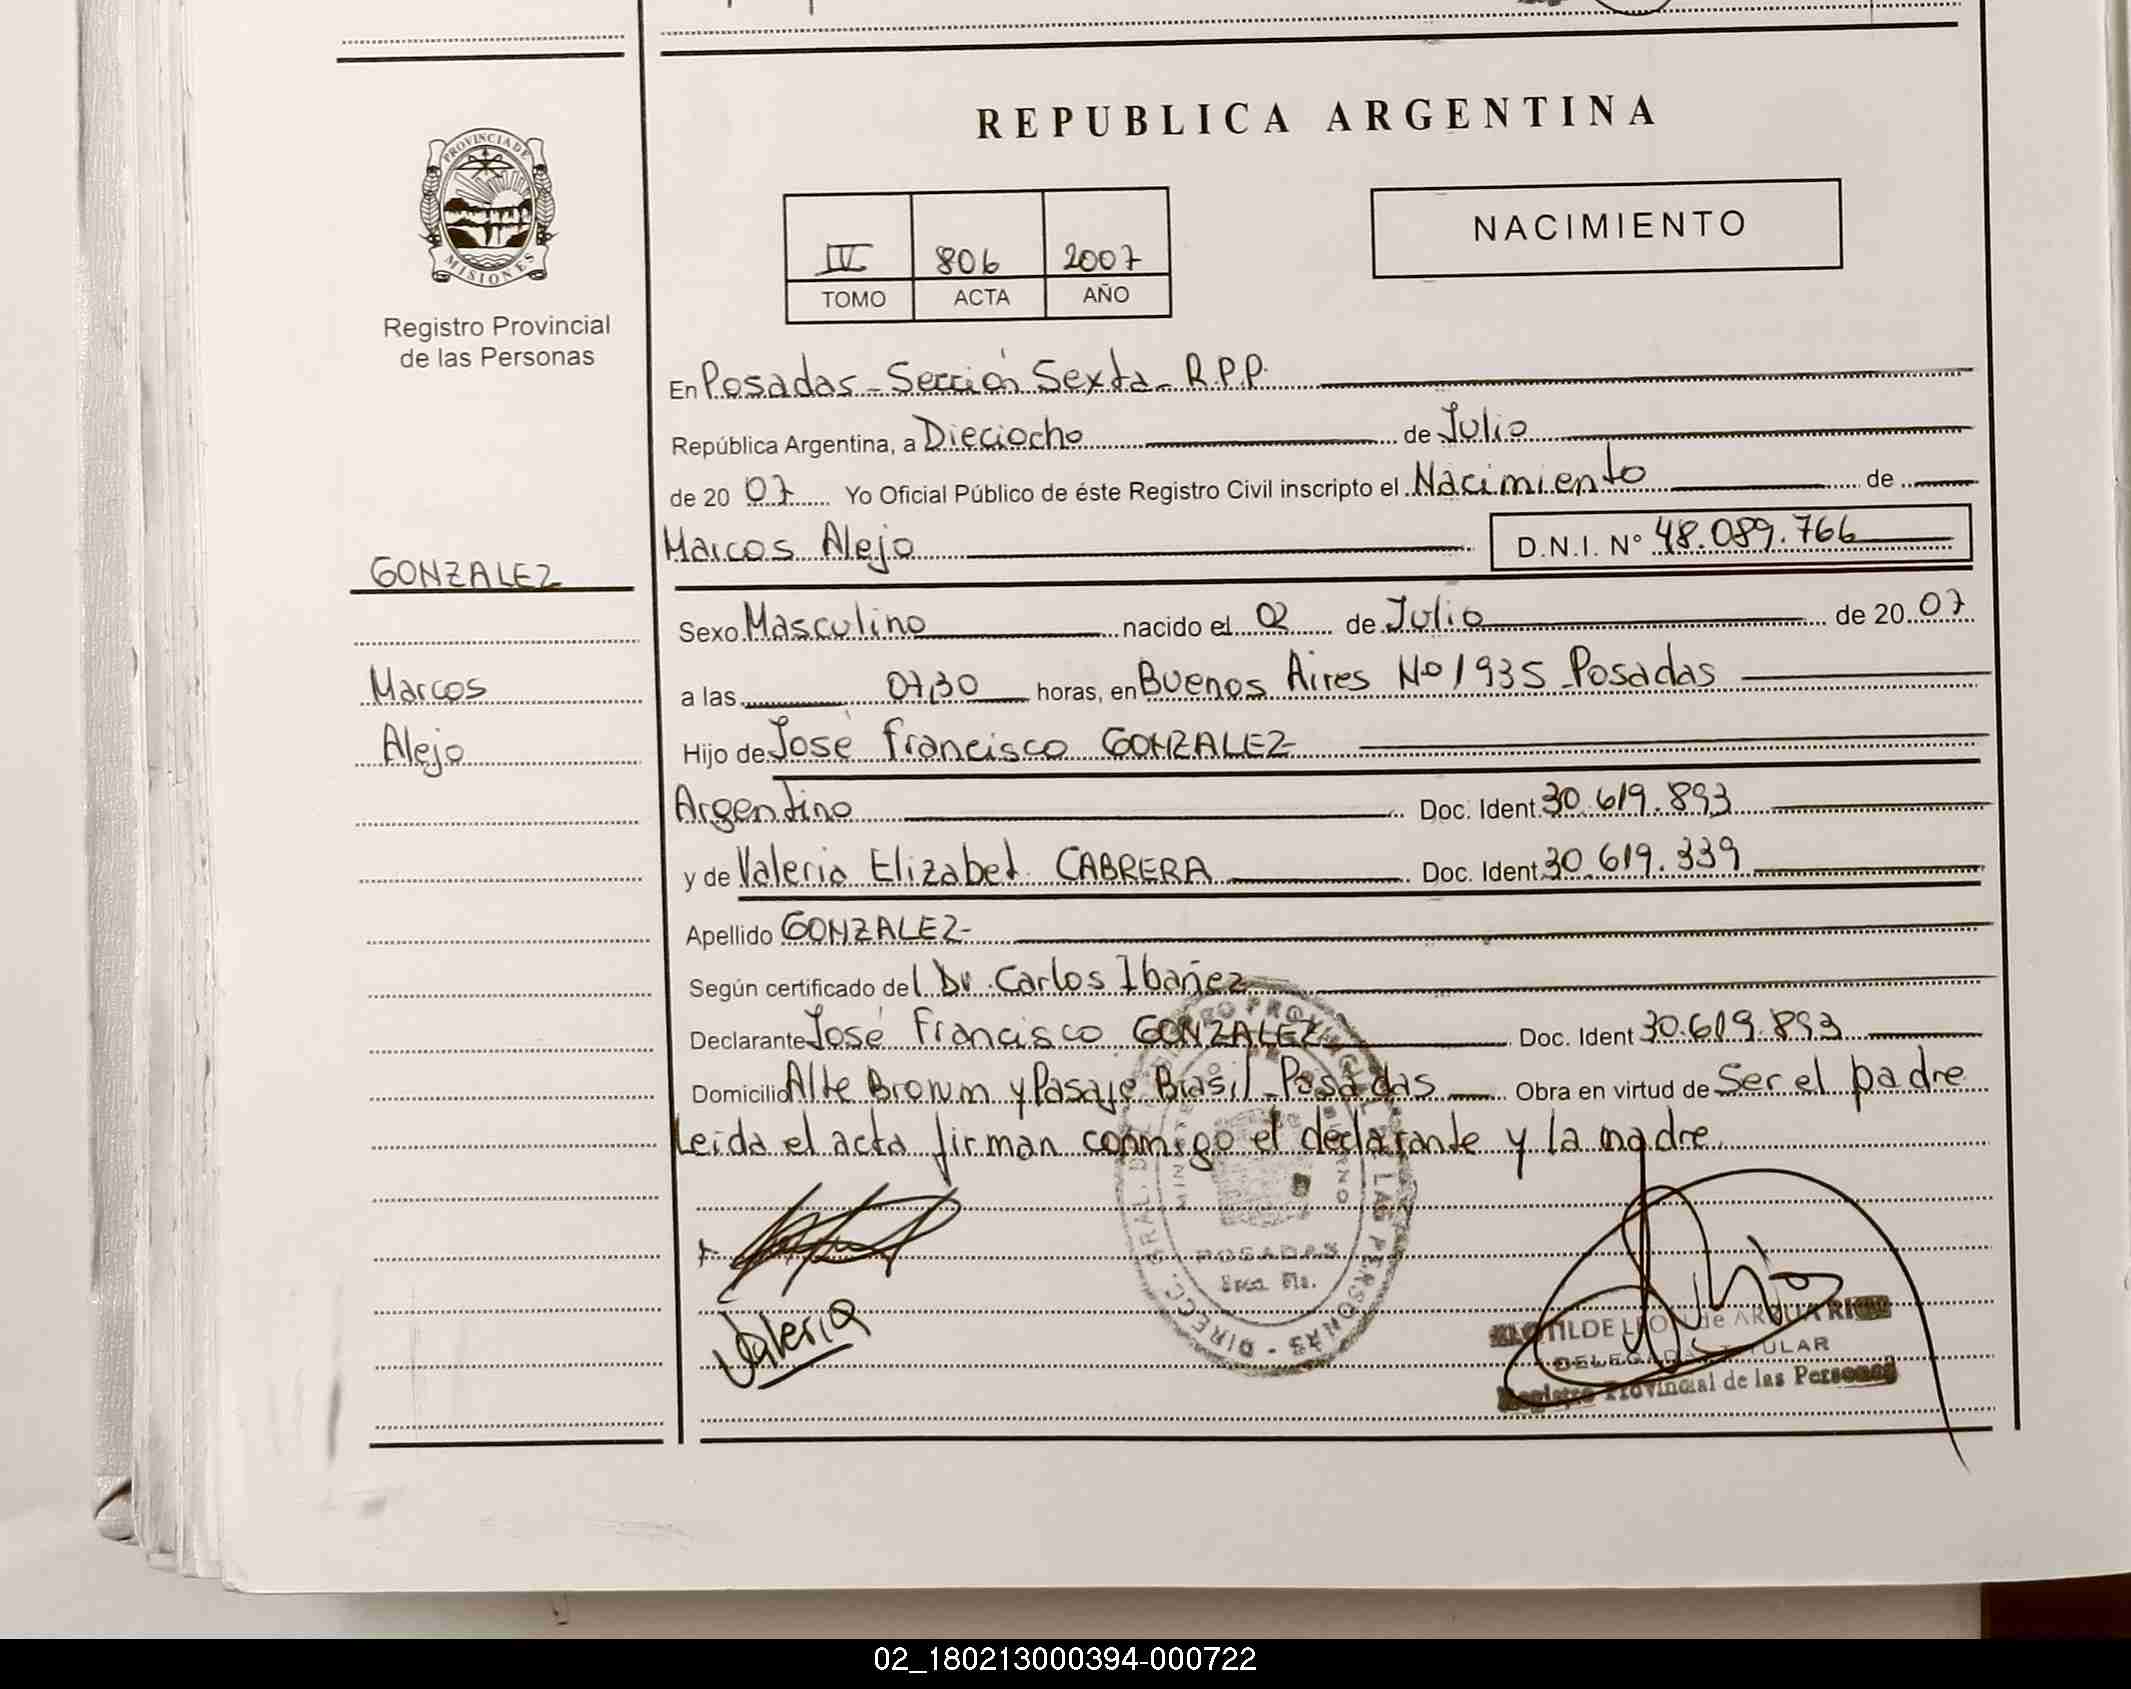 REPUBLICA ARGENTINA
PROVINCIA DE
MISIONES
Registro Provincial
de las Personas
NACIMIENTO
IV 806 2007
TOMO ACTA AÑO
En Posadas - Sección Sexta - R.P.P.
República Argentina, a Dieciocho de Julio
de 20 07 Yo Oficial Público de éste Registro Civil inscripto el Nacimiento de
Marcos Alejo D.N.I. Nº 48.089.766
GONZALEZ
Marcos
Alejo
Sexo Masculino nacido el 02 de Julio de 20 07
a las 07,30 horas, en Buenos Aires Nº 1935 - Posadas
Hijo de José Francisco GONZALEZ
Argentino Doc. Ident. 30.619.893
y de Valeria Elizabet CABRERA Doc. Ident. 30.619.339
Apellido GONZALEZ-
Según certificado del Dr. Carlos Ibañez
Declarante José Francisco GONZALEZ Doc. Ident 30.619.893
Domicilio Alte Brown y Pasaje Brasil - Posadas Obra en virtud de Ser el padre
Leida el acta firman conmigo el declarante y la madre
Valeria
POSADAS
DELEGADA TITULAR
Registro Provincial de las Personas
02_180213000394-000722